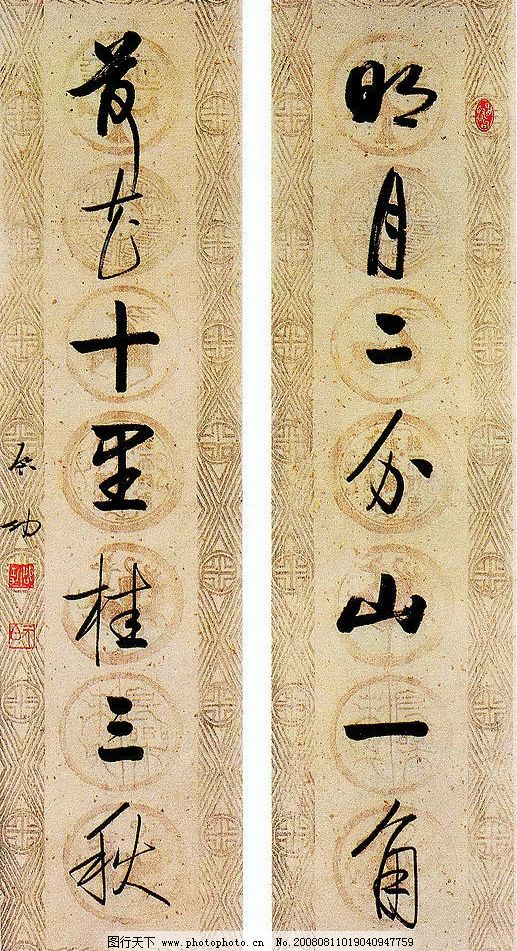 明月二分山一角
荷花十里桂三秋
启功
图行天下 www.photophoto.cn No.20080811019040947759